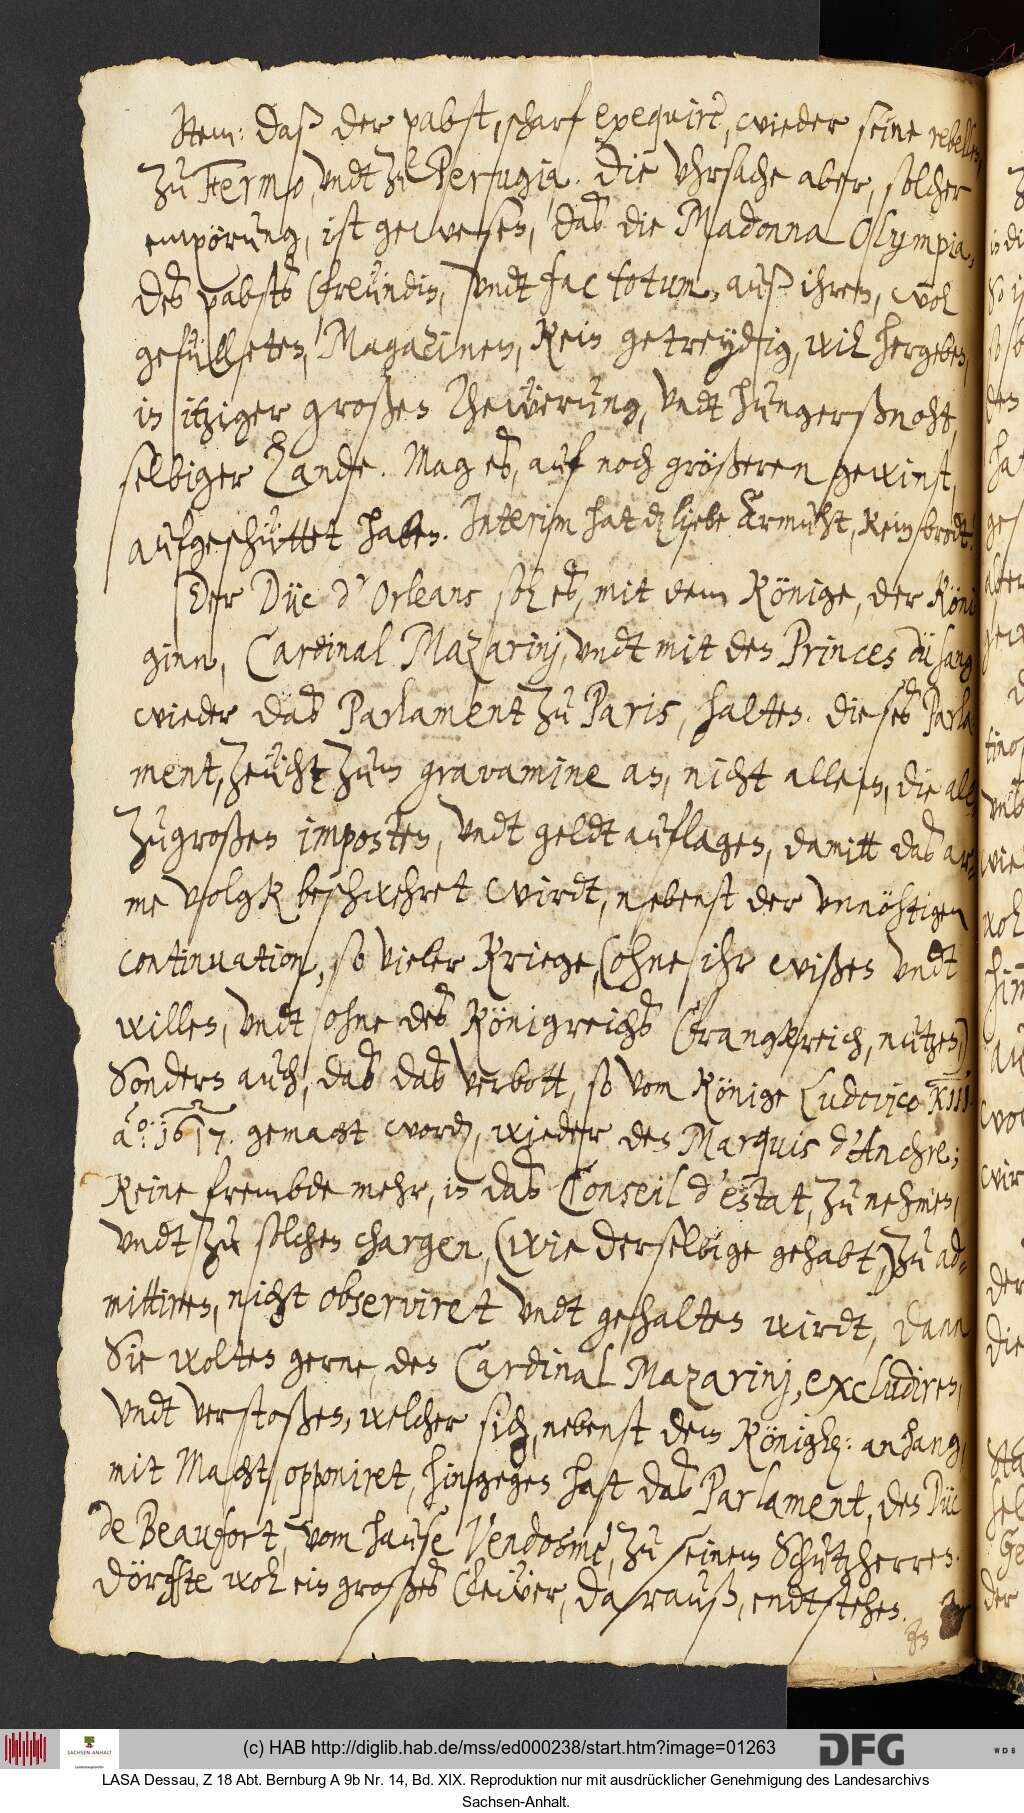 Item: daß der pabst, scharf exequirt, wieder seine rebellen,
zu Fermo, undt zu Perugia. Die uhrsache aber, solcher
empörung, ist gewesen, daß die Madonna Olympia,
des pabsts freündin, undt fac totum, auß ihren, wol
gefülleten, Magazinen, kein getreydig, will hergeben,
in itziger großen Thewerung, undt hungersnoht,
selbiger Lande. Mag es, auf noch größeren gewinst,
aufgeschüttet haben. Interim hat die liebe Armuht, kein brodt.
Der Düc d'Orleans soll es, mit dem Könige, der Köni
ginn, Cardinal Mazarinj, undt mit den Princes du sang
wieder das Parlament zu Paris, halten. dieses Parla
ment, zeücht zum gravamine an, nicht allein, die all-
zugroßen imposten, undt geldtauflagen, damitt das ar-
me volgk beschwehret wirdt, nebenst der unnöhtigen
continuation, so vieler Kriege, (ohne ihr wißen undt
willen, undt ohne des Königreichs Frangkreich, nutzen)
Sondern auch, das das verbott, so vom Könige Ludovico XIII.
ao: 1617. gemacht worden, wieder den Marquis d'Anchre;
Keine frembde mehr, in das Conseil d'estat, zu nehmen,
undt zu solchen chargen, (wie derselbige gehabt,) zu ad-
mittiren, nicht observiret undt gehalten wirdt, dann
Sie wolten gerne, den Cardinal Mazarinj, excludiren,
undt verstoßen, welcher sich, nebenst dem Königlichen: anhang,
mit Macht, opponiret, hingegen hat das Parlament, den Düc
de Beaufort, vom hause Vendosme, zu seinem Schutzherren.
dörffte wol ein großes fewer, darauß, endtstehen.
(c) HAB http://diglib.hab.de/mss/ed000238/start.htm?image=01263
SACHSEN-ANHALT
DFG
WDB
LASA Dessau, Z 18 Abt. Bernburg A 9b Nr. 14, Bd. XIX. Reproduktion nur mit ausdrücklicher Genehmigung des Landesarchivs
Sachsen-Anhalt.